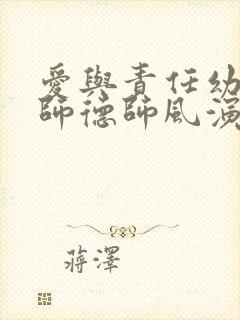 愛與責任幼
師德師風演
蔣澤